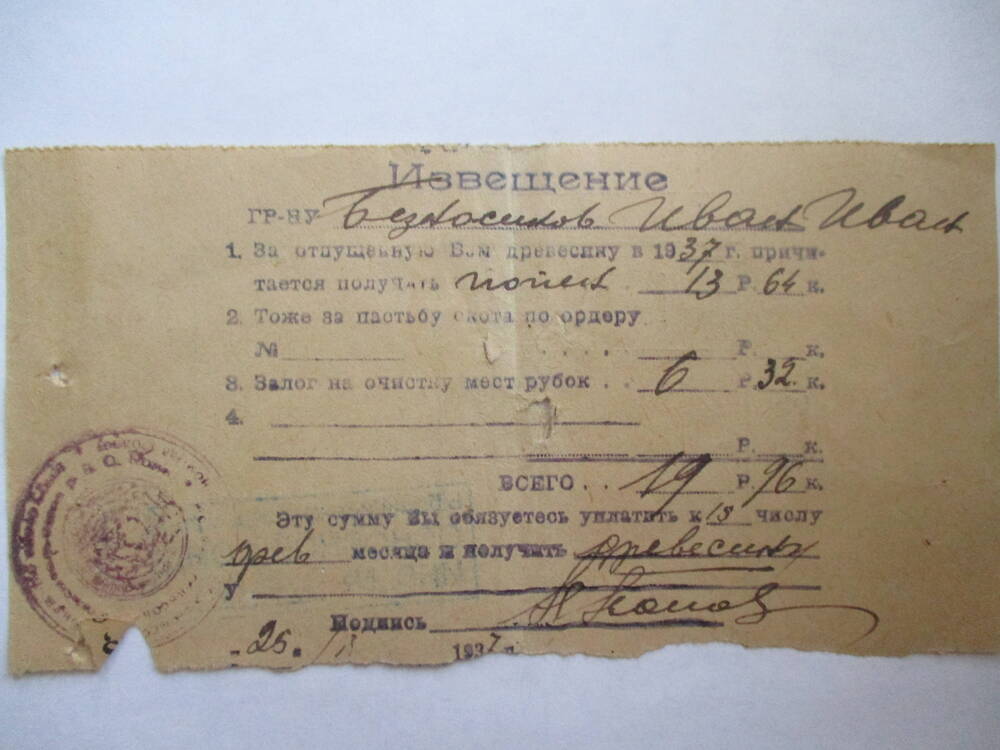 Извещение
ГР-НУ Безносиков Иван Иван
1. За отпущенную Вам древесину в 1937 г. причи-
тается получать 13 Р. 64 к.
2. Тоже за пастьбу скота по ордеру
№ Р. к.
3. Залог на очистку мест рубок . . 6 Р. 32 к.
4.
Р. к.
ВСЕГО . . 19 Р. 96 к.
Эту сумму Вы обязуетесь уплатить к 15 числу
фев месяца и получить древесину
У
Подпись
25 1937 г.